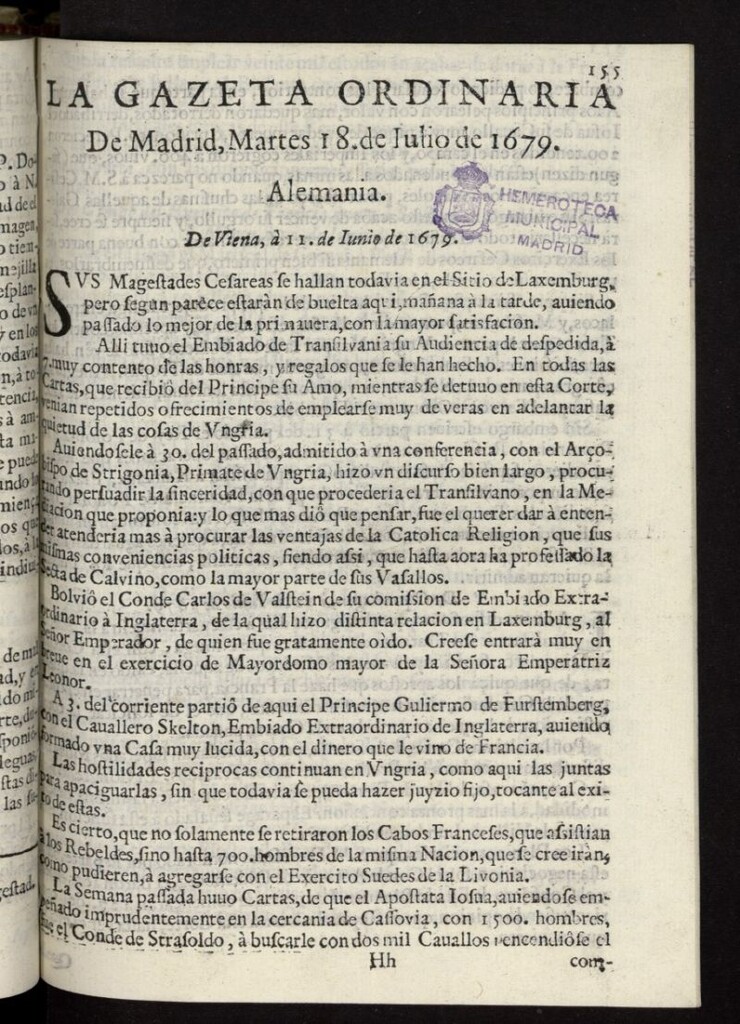 155
LA GAZETA ORDINARIA
De Madrid, Martes 18. de Iulio de 1679.
Alemania.
HEMEROTECA
MUNICIPAL
MADRID
De Viena, à 11. de Iunio de 1679.
SVS Magestades Cesareas se hallan todavia en el Sitio de Laxemburg,
pero segun parece estaràn de buelta aqui, mañana à la tarde, auiendo
passado lo mejor de la primauera, con la mayor satisfacion.
Alli tuuo el Embiado de Transilvania su Audiencia de despedida, à
7. muy contento de las honras, y regalos que se le han hecho. En todas las
Cartas, que recibiò del Principe su Amo, mientras se detuuo en esta Corte,
venian repetidos ofrecimientos de emplearse muy de veras en adelantar la
quietud de las cosas de Vngria.
Auiendosele à 30. del passado, admitido à vna conferencia, con el Arço-
bispo de Strigonia, Primate de Vngria, hizo vn discurso bien largo, procu-
rando persuadir la sinceridad, con que procederia el Transilvano, en la Me-
diacion que proponia: y lo que mas diò que pensar, fue el querer dar à enten-
der atenderia mas à procurar las ventajas de la Catolica Religion, que sus
mismas conveniencias politicas, siendo assi, que hasta aora ha professado la
Secta de Calvino, como la mayor parte de sus Vasallos.
Bolviò el Conde Carlos de Valstein de su comission de Embiado Extra-
ordinario à Inglaterra, de la qual hizo distinta relacion en Laxemburg, al
Señor Emperador, de quien fue gratamente oìdo. Creese entrarà muy en
breue en el exercicio de Mayordomo mayor de la Señora Emperatriz
Leonor.
A 3. del corriente partiò de aqui el Principe Guliermo de Furstemberg,
con el Cauallero Skelton, Embiado Extraordinario de Inglaterra, auiendo
formado vna Casa muy lucida, con el dinero que le vino de Francia.
Las hostilidades reciprocas continuan en Vngria, como aqui las juntas
para apaciguarlas, sin que todavia se pueda hazer juyzio fijo, tocante al exi-
to de estas.
Es cierto, que no solamente se retiraron los Cabos Franceses, que assistian
à los Rebeldes, sino hasta 700. hombres de la misma Nacion, que se cree iràn,
como pudieren, à agregarse con el Exercito Suedes de la Livonia.
La Semana passada huuo Cartas, de que el Apostata Iosua, auiendose em-
peñado imprudentemente en la cercania de Cassovia, con 1500. hombres,
fue el Conde de Strasoldo, à buscarle con dos mil Cauallos y encendiòse el
Hh com-